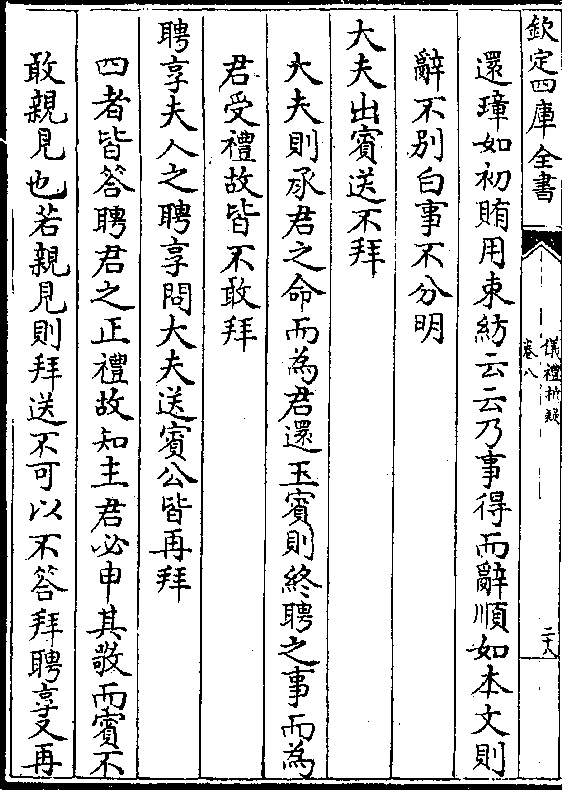 欽定四庫全書
儀禮析疑
卷八
二十八
還璋如初賄用束紡云云乃事得而辭順如本文則
辭不别白事不分明
大夫出賓送不拜
大夫則承君之命而為君還玉賓則終聘之事而為
君受禮故皆不敢拜
聘享夫人之聘享問大夫送賓公皆再拜
四者皆答聘君之正禮故知主君必申其敬而賓不
敢親見也若親見則拜送不可以不答拜聘享又再